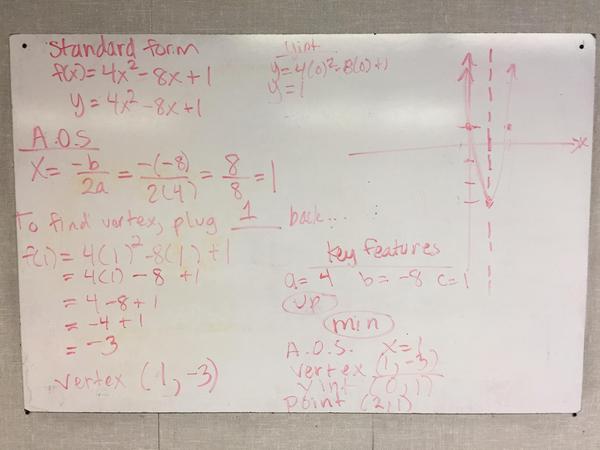 Standard form
f(x) = 4x² - 8x + 1
y = 4x² - 8x + 1
A.O.S
x = -b/2a = -(-8)/2(4) = 8/8 = 1
To find vertex, plug 1 back...
f(1) = 4(1)² - 8(1) + 1
= 4(1) - 8 + 1
= 4 - 8 + 1
= -4 + 1
= -3
vertex (1, -3)
yint
y = 4(0)² - 8(0) + 1
y = 1
x
key features
a = 4 b = -8 c = 1
up
min
A.O.S. x = 1
vertex (1, -3)
yint (0, 1)
point (2, 1)